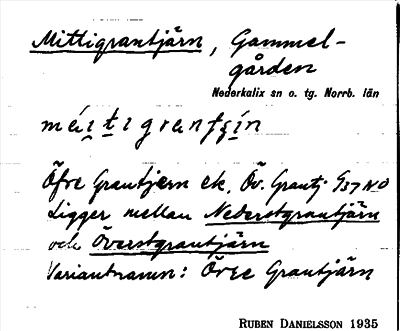 Mittigrantjärn, Gammel-
gården
Nederkalix sn o. tg. Norrb. län
máitigrantjin
Öfre Grantjern ek. Öv. Grantj. G37 NO
Ligger mellan Nederstgrantjärn
och Överstgrantjärn
Variantnamn: Övre Grantjärn
RUBEN DANIELSSON 1935